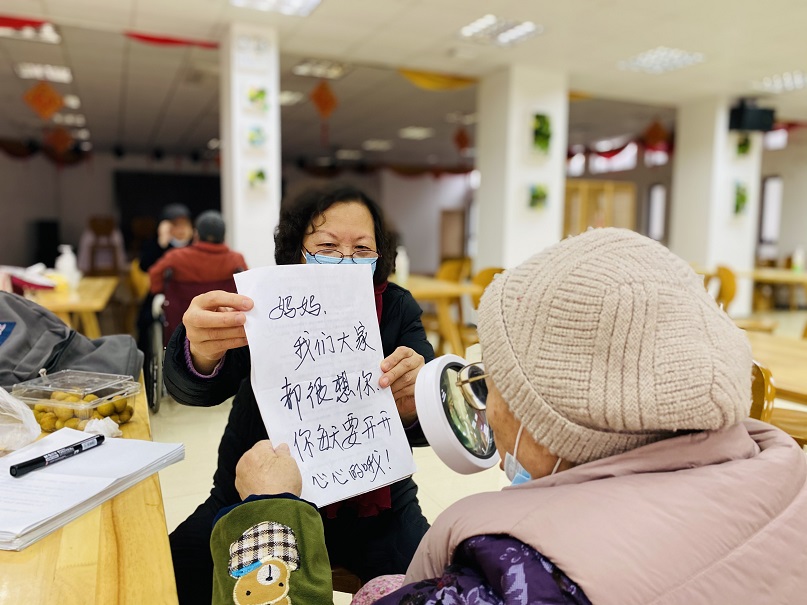 妈妈,
我们大家
都很想你,
你每天要开开
心心的哦!